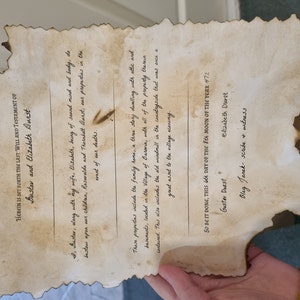 Herein is set forth the last Will and Testament of
Gustav and Elizabeth Durst
I, Gustav, along with my wife, Elizabeth, being of sound mind and body do
bestow upon our children, Rosavalda and Thornbolt Durst, our properties in the
end of our deaths.
These properties include the family home, a three story dwelling with attic and
basement, located in the village of Barovia, with all of the property therein
contained. This also includes the old windmill in the countryside that was once a
grand asset to the village economy.
So be it done, this 6th day of the 8th moon of the year 472
Gustav Durst Elizabeth Durst
scribe & witness